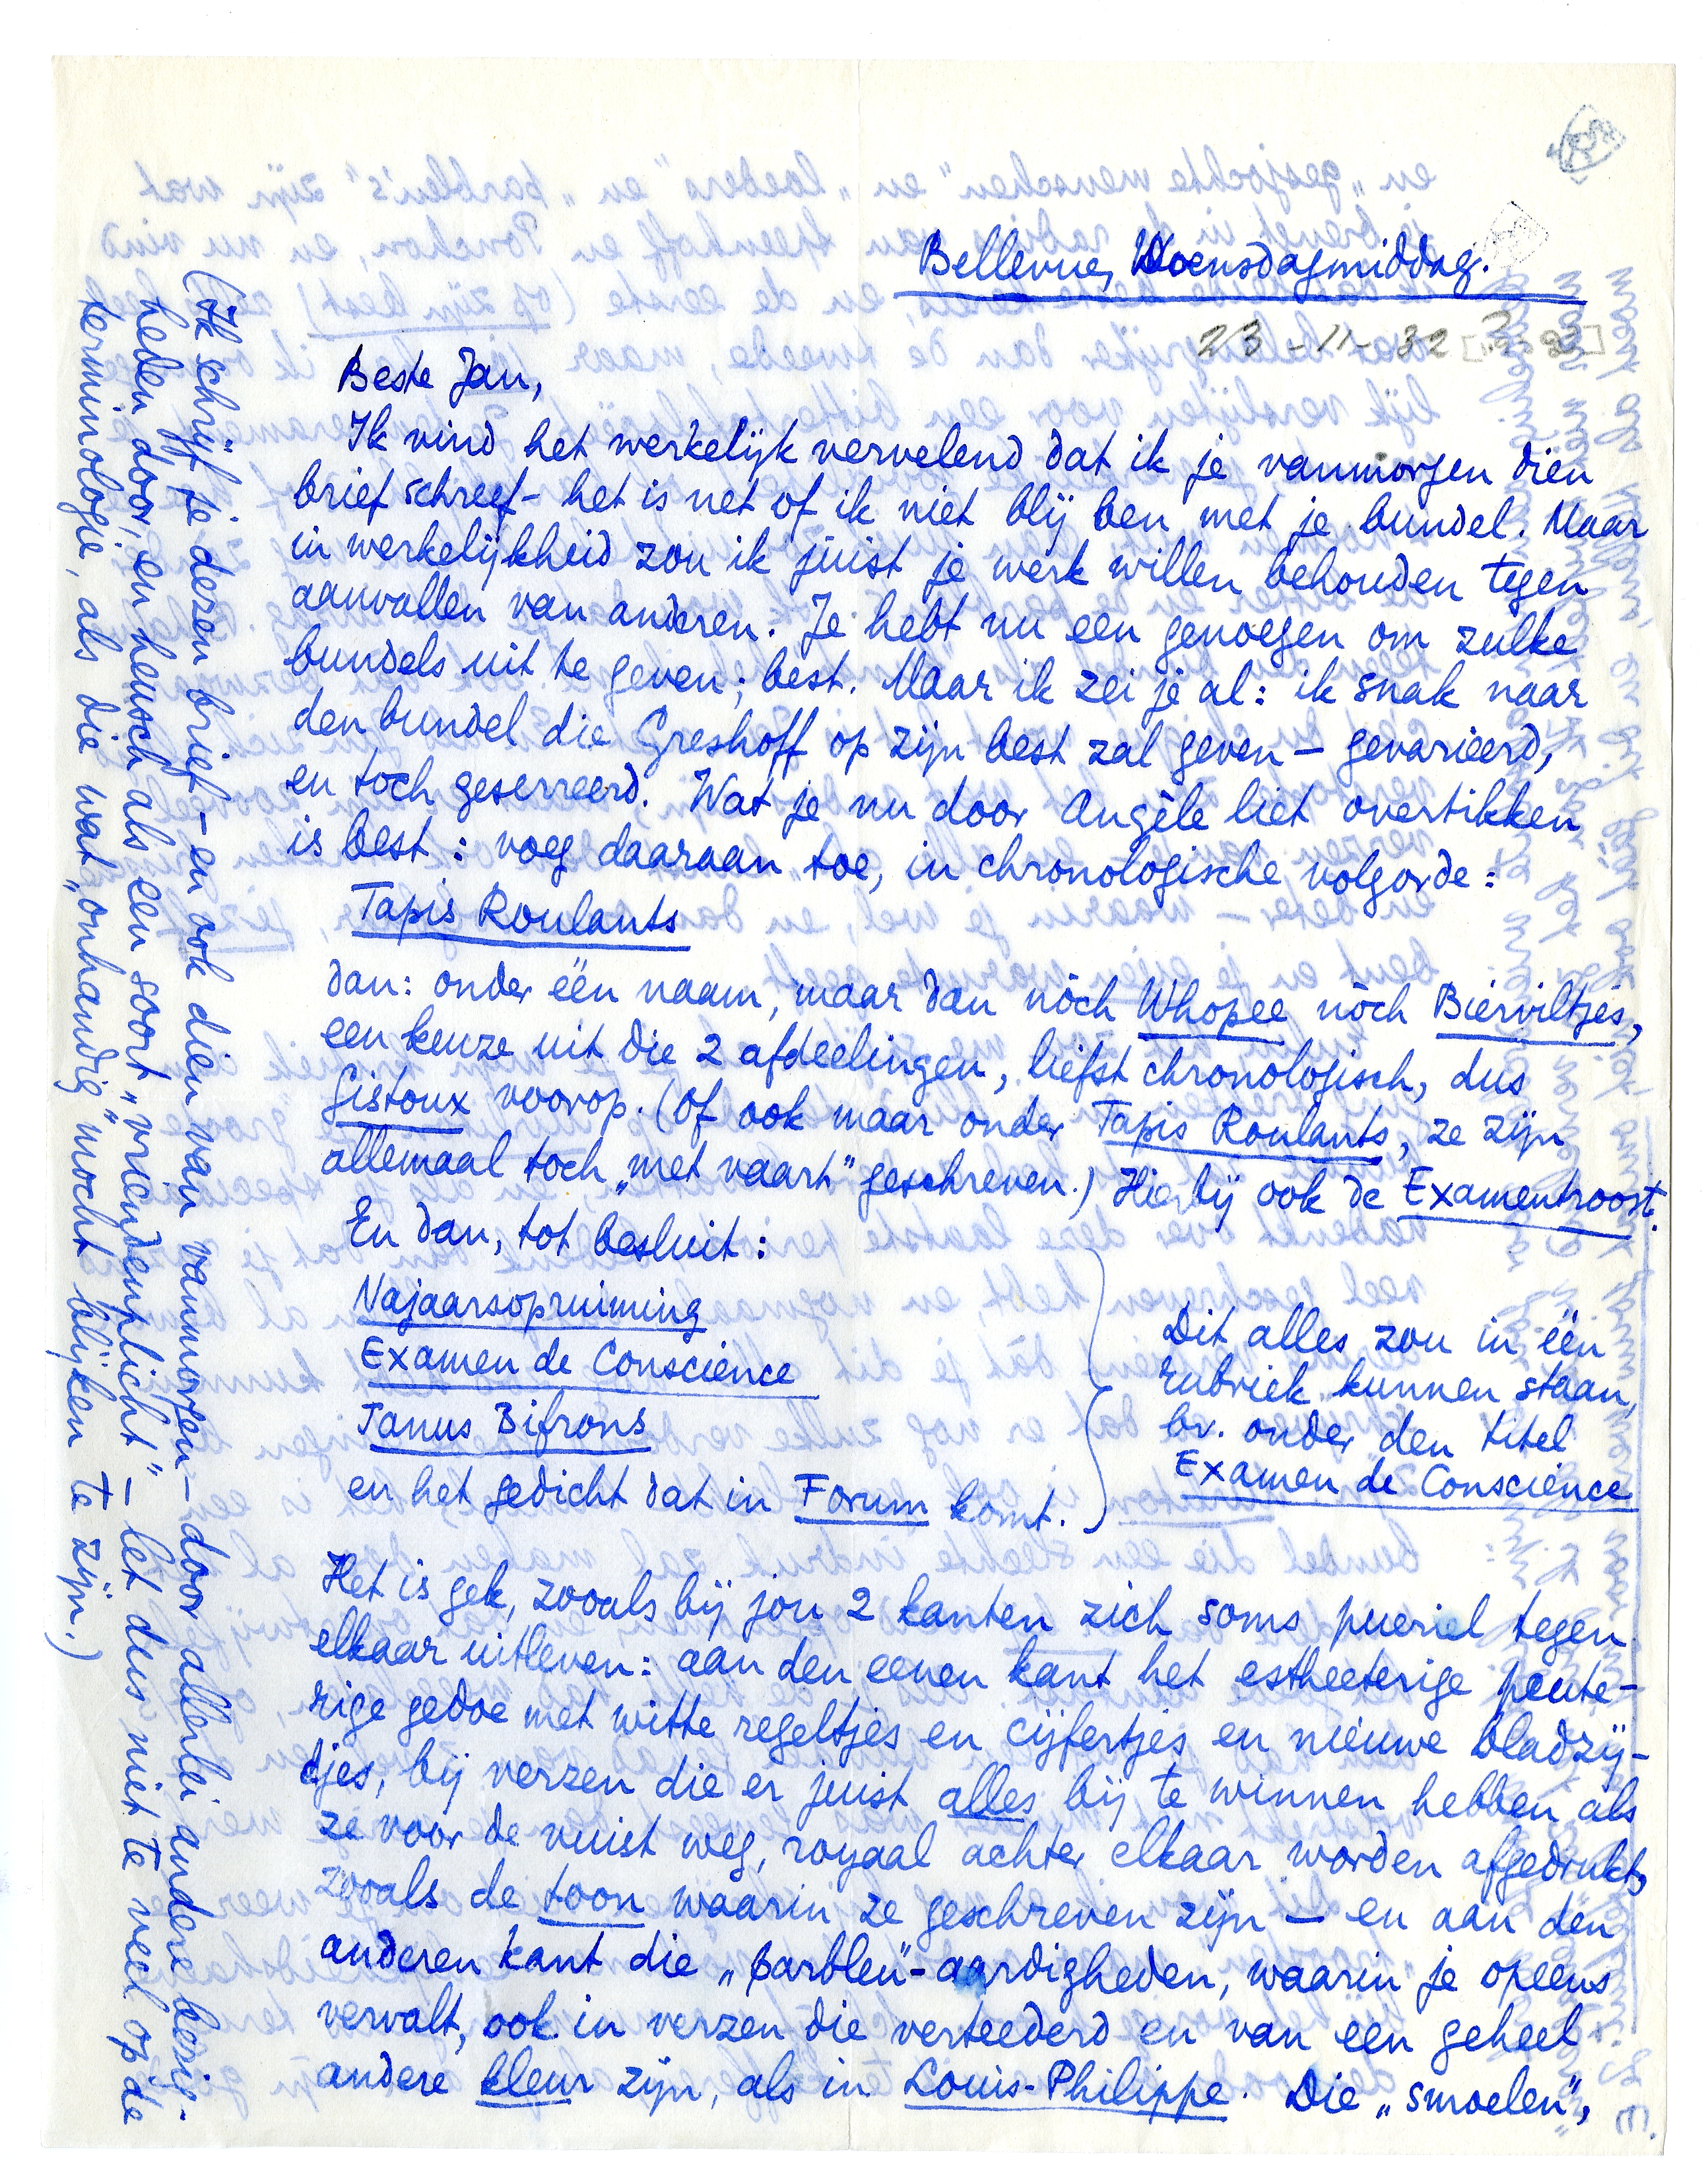 Bellevue, Woensdagmiddag.
23-11-32
Beste Jan,
Ik vind het werkelijk vervelend dat ik je vanmorgen dien
brief schreef – het is net of ik niet blij ben met je bundel. Maar
in werkelijkheid zou ik júist je werk willen behouden tegen
aanvallen van anderen. Je hebt nu een genoegen om zulke
bundels uit te geven; best. Maar ik zei je al: ik snak naar
den bundel die Greshoff op zijn best zal geven – gevarieerd,
en toch geserreerd. Wat je nu door Angèle liet overtikken
is best: voeg daaraan toe, in chronologische volgorde:
Tapis Roulants
dan: onder één naam, maar dan nòch Whopee nòch Bierviltjes,
een keuze uit die 2 afdeelingen, liefst chronologisch, dus
Gistoux voorop. (Of ook maar onder Tapis Roulants, ze zijn
allemaal toch „met vaart” geschreven.) Hierbij ook de Examentroost.
En dan, tot besluit:
Najaarsopruiming
Examen de Conscience
Janus Bifrons
en het gedicht dat in Forum komt.
Dit alles zou in één
rubriek kunnen staan,
bv. onder den titel
Examen de Conscience
Het is gek, zooals bij jou 2 kanten zich soms pueriel tegen
elkaar uitleven: aan den eenen kant het estheeterige peute-
rige gedoe met witte regeltjes en cijfertjes en nieuwe bladzij-
djes, bij verzen die er juist alles bij te winnen hebben als
ze voor de vuist weg, royaal achter elkaar worden afgedrukt,
zooals de toon waarin ze geschreven zijn – en aan den
anderen kant die „parbleu”-aardigheden, waarin je opeens
vervalt, ook in verzen die verteederd en van een geheel
andere kleur zijn, als in Louis-Philippe. Die „smoelen”,
(Ik schrijf je dezen brief – en ook dien van vanmorgen – door allerlei andere bezig-
heden door, en heusch als een soort „vriendenplicht” – let dus niet te veel op de
terminologie, als die wat „onhandig” mocht blijken te zijn.)